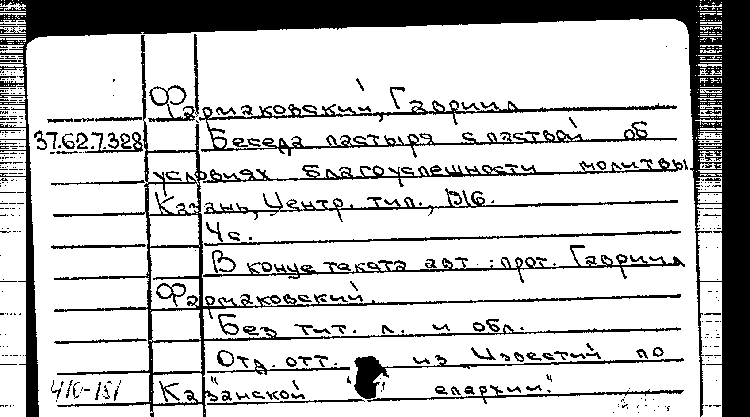 Фармаковский, Гавриил
37.62.7.328 Беседа пастыря с паствой об
условиях благоуспешности молитвы.
Казань, Центр. тип., 1916.
4 с.
В конце текста авт.: прот. Гавриил
Фармаковский.
Без тит. л. и обл.
Отд. отт. из "Известий по
Казанской епархии."